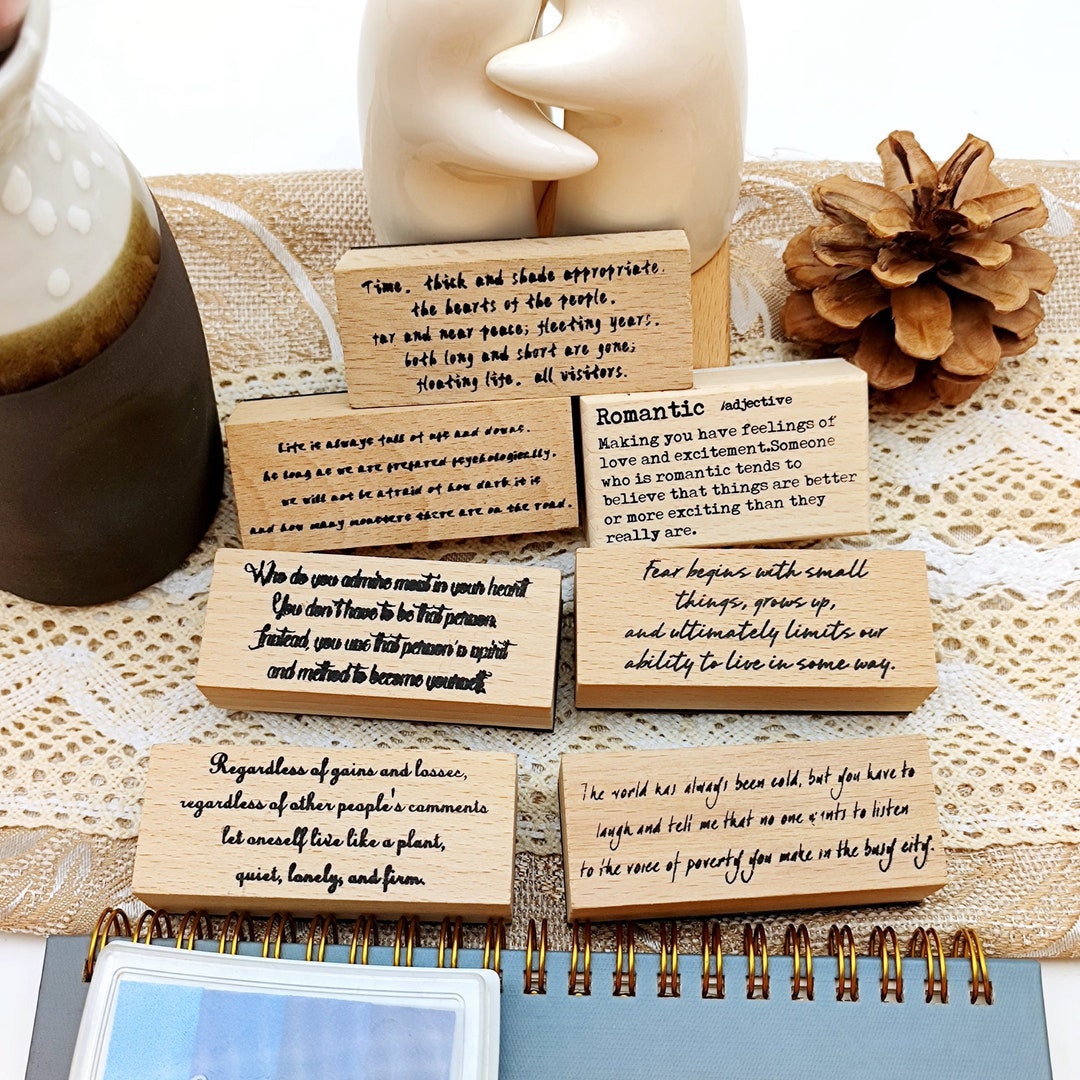 Time. thick and shade appropriate.
the hearts of the people,
far and near peace; fleeting years.
both long and short are gone;
floating life. all visitors.
Life is always full of ups and downs.
As long as we are prepared psychologically,
we will not be afraid of how dark it is
and how many monsters there are on the road.
Romantic /adjective
Making you have feelings of
love and excitement.Someone
who is romantic tends to
believe that things are better
or more exciting than they
really are.
Who do you admire most in your heart
You don't have to be that person.
Instead, you use that person's spirit
and method to become yourself.
Fear begins with small
things, grows up,
and ultimately limits our
ability to live in some way.
Regardless of gains and losses,
regardless of other people's comments
let oneself live like a plant,
quiet, lonely, and firm.
The world has always been cold, but you have to
laugh and tell me that no one wants to listen
to the voice of poverty you make in the busy city.